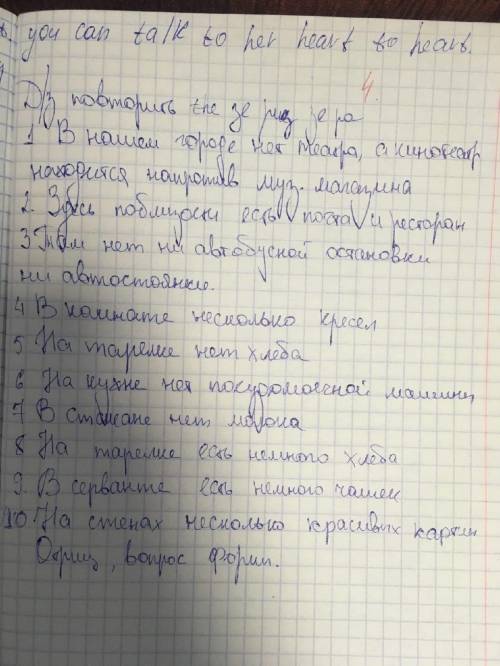 you can talk to her heart to heart.
4.
Д/з повторить the зе риз зе ра
1 В нашем городе нет театра, а кинотеатр
находится напротив муз. магазина
2. Здесь поблизости есть почта и ресторан
3 Там нет ни автобусной остановки
ни автостоянки.
4 В комнате несколько кресел
5 На тарелке нет хлеба
6 На кухне нет посудомоечной машины
7 В стакане нет молока
8 На тарелке есть немного хлеба
9. В серванте есть немного чашек
10. На стенах несколько красивых картин
Отриц, вопрос форми.